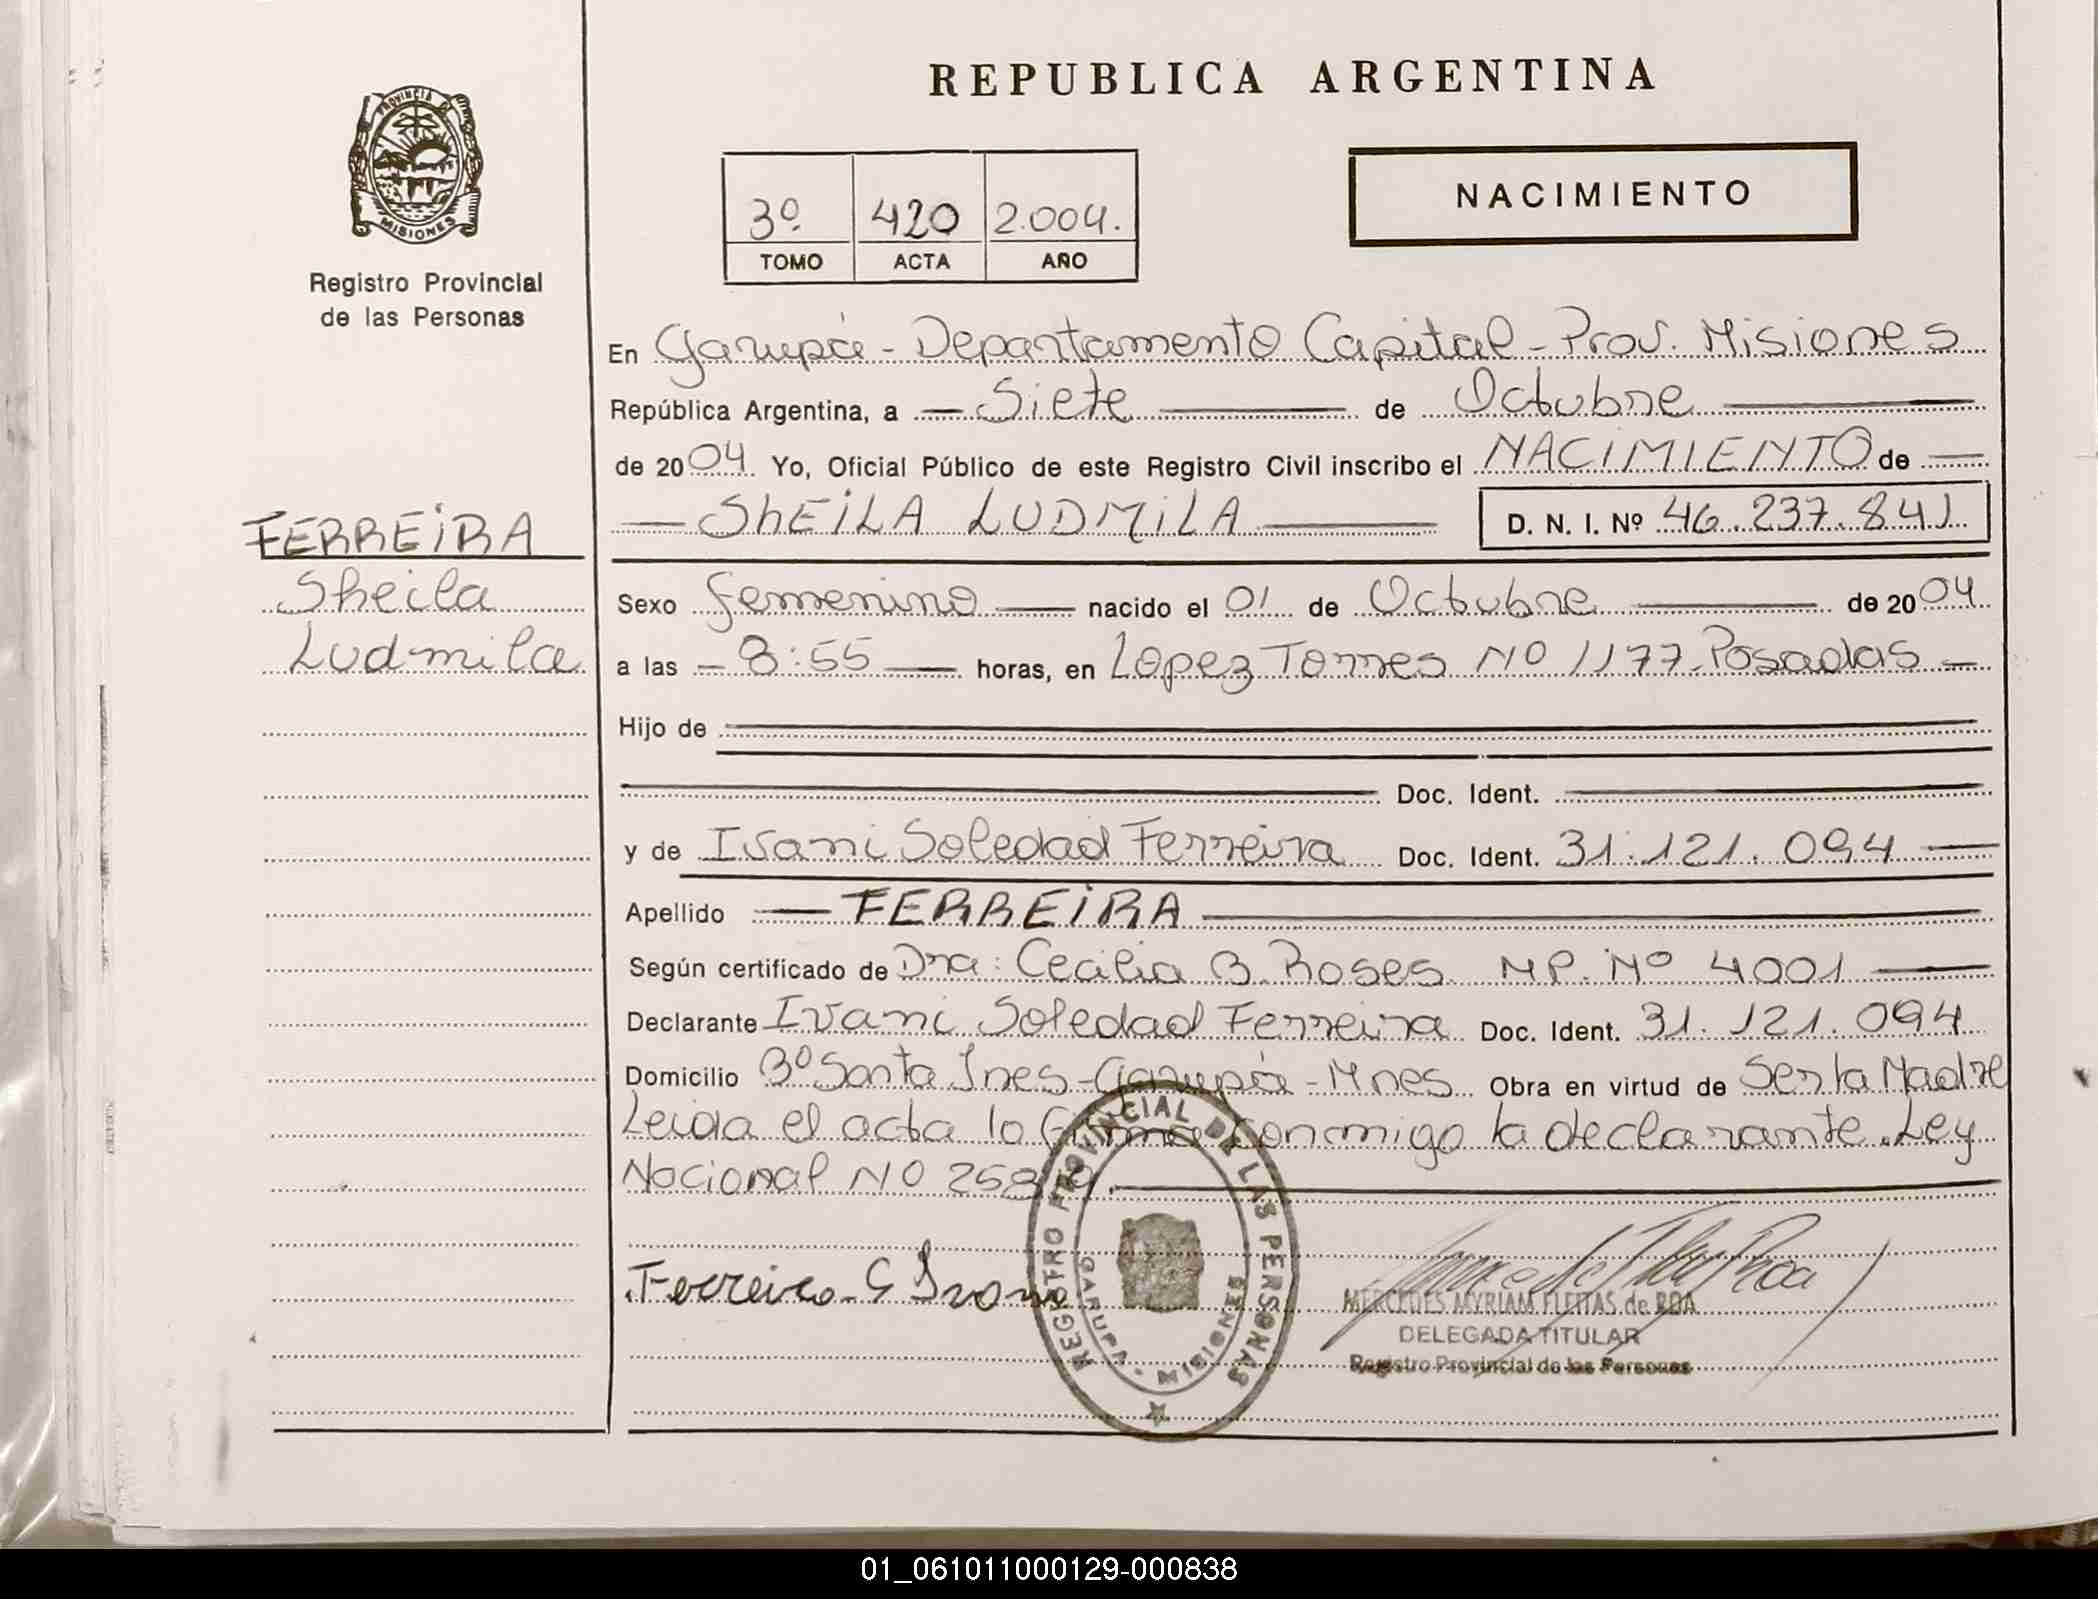 REPUBLICA ARGENTINA
PROVINCIA DE
MISIONES
Registro Provincial
de las Personas
3º 420 2.004.
TOMO ACTA AÑO
NACIMIENTO
En Garupá - Departamento Capital - Prov. Misiones
República Argentina, a — Siete — de Octubre —
de 2004. Yo, Oficial Público de este Registro Civil inscribo el NACIMIENTO de —
— ShEiLA LUDMiLA — D. N. I. Nº 46.237.841
FERREiRA
Sheila
Ludmila
Sexo femenino — nacido el 01 de Octubre — de 2004
a las — 8:55 — horas, en Lopez Torres Nº 1177. Posadas —
Hijo de
Doc. Ident.
y de Ivani Soledad Ferreira Doc. Ident. 31.121.094 —
Apellido — FERREiRA —
Según certificado de Dra: Cecilia B. Roses. M.P. Nº 4001 —
Declarante Ivani Soledad Ferreira Doc. Ident. 31.121.094
Domicilio Bº Santa Ines - Garupá - Mnes. Obra en virtud de Ser la Madre
Leida el acta lo Firma Conmigo la declarante. Ley
Nacional Nº
Ferreira S Ivani
REGISTRO PROVINCIAL DE LAS PERSONAS
GARUPA - MISIONES
MERCEDES MYRIAM FLEITAS de ROA
DELEGADA TITULAR
Registro Provincial de las Personas
01_061011000129-000838